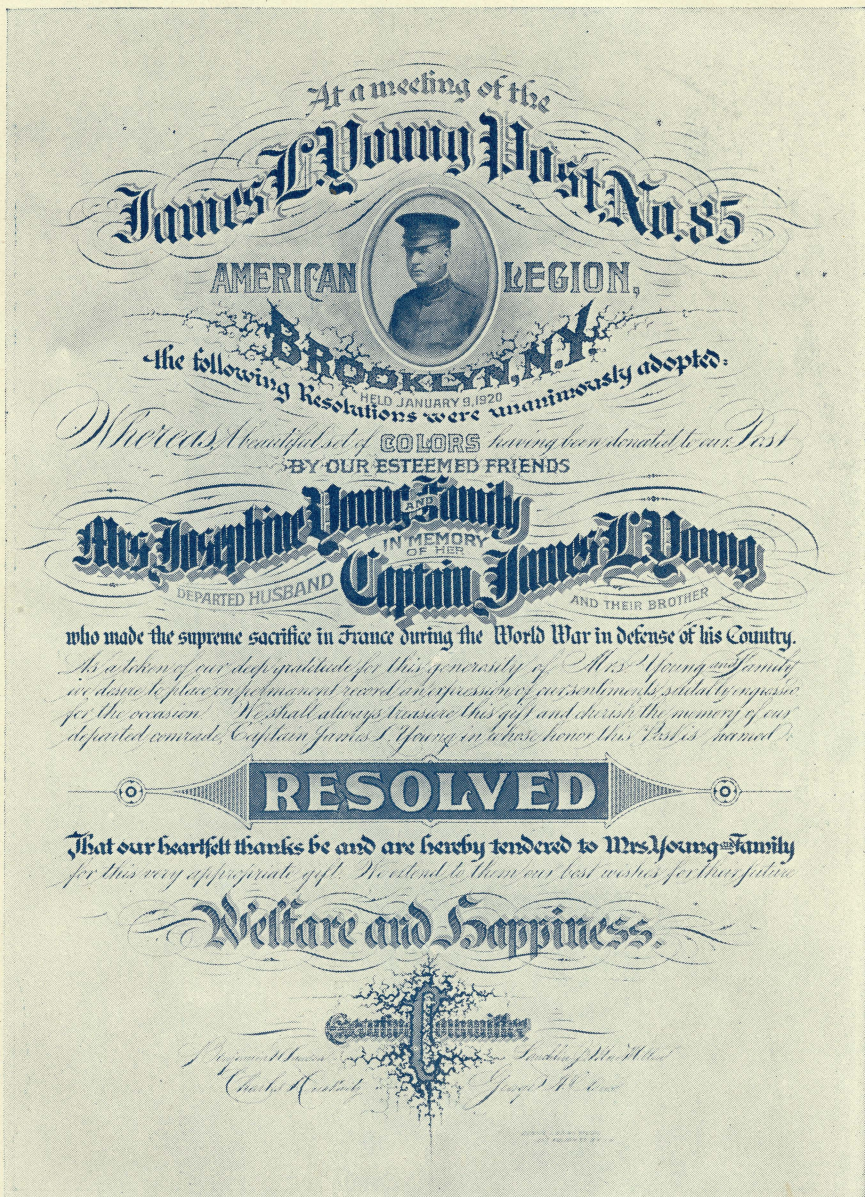 At a meeting of the
James L. Young Post, No. 85
AMERICAN LEGION,
BROOKLYN, N.Y.
HELD JANUARY 9, 1920
the following Resolutions were unanimously adopted:
Whereas, A beautiful set of COLORS having been donated to our Post
BY OUR ESTEEMED FRIENDS
Mrs Josephine Young AND Family
IN MEMORY
OF HER
DEPARTED HUSBAND Captain James L. Young
AND THEIR BROTHER
who made the supreme sacrifice in France during the World War in defense of his Country.
As a token of our deep gratitude for this generosity of Mrs Young and Family
we desire to place on permanent record an expression of our sentiments suitably engrossed
for the occasion. We shall always treasure this gift and cherish the memory of our
departed comrade, Captain James L. Young in whose honor this Post is named.
RESOLVED
That our heartfelt thanks be and are hereby tendered to Mrs. Young and Family
for this very appropriate gift. We extend to them our best wishes for their future
Welfare and Happiness.
Executive Committee
Benjamin
Charles George